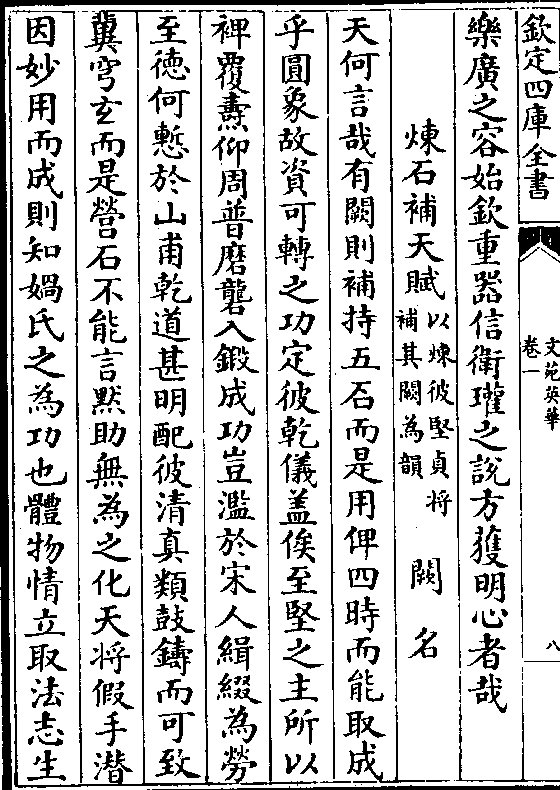 欽定四庫全書
文苑英華
卷一
八
樂廣之容始欽重器信衛瓘之説方獲明心者哉
煉石補天賦以煉彼堅貞將補其闕為韻 闕名
天何言哉有闕則補持五石而是用俾四時而能取成
乎圓象故資可轉之功定彼乾儀盖俟至堅之主所以
裨覆燾仰周普磨礲入鍛成功豈濫於宋人緝綴為勞
至徳何慙於山甫乾道甚明配彼清真類鼓鑄而可致
冀穹玄而是營石不能言黙助無為之化天將假手潜
因妙用而成則知媧氏之為功也體物情立取法志生